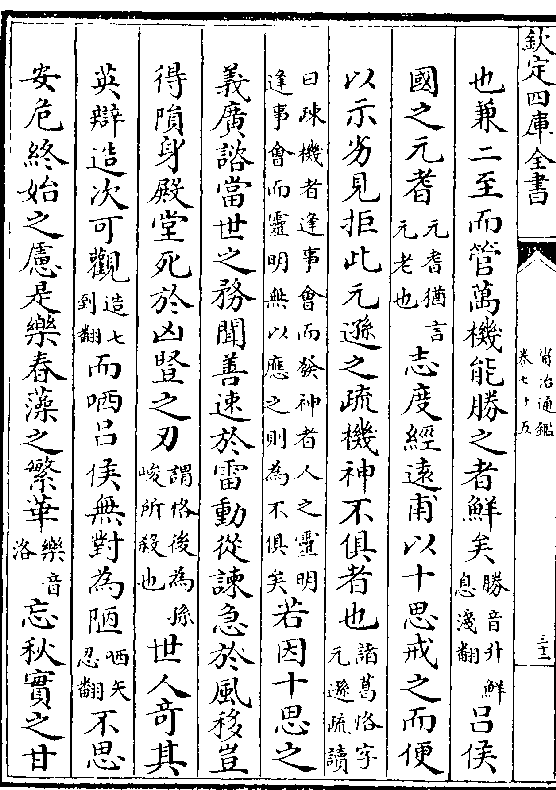 欽定四庫全書
資治通鑑
卷七十五
三十二
也兼二至而管萬機能勝之者鮮矣勝音升鮮息淺翻吕侯
國之元耆元耆猶言元老也志度經遠甫以十思戒之而便
以示劣見拒此元遜之疏機神不俱者也諸葛恪字元遜疏讀
曰疎機者逢事會而發神者人之靈明逢事會而靈明無以應之則為不俱矣若因十思之
義廣諮當世之務聞善速於雷動從諫急於風移豈
得隕身殿堂死於凶豎之刃謂恪後為孫峻所殺也世人奇其
英辯造次可觀造七到翻而哂吕侯無對為陋哂矢忍翻不思
安危終始之慮是樂春藻之繁華樂音洛忘秋實之甘